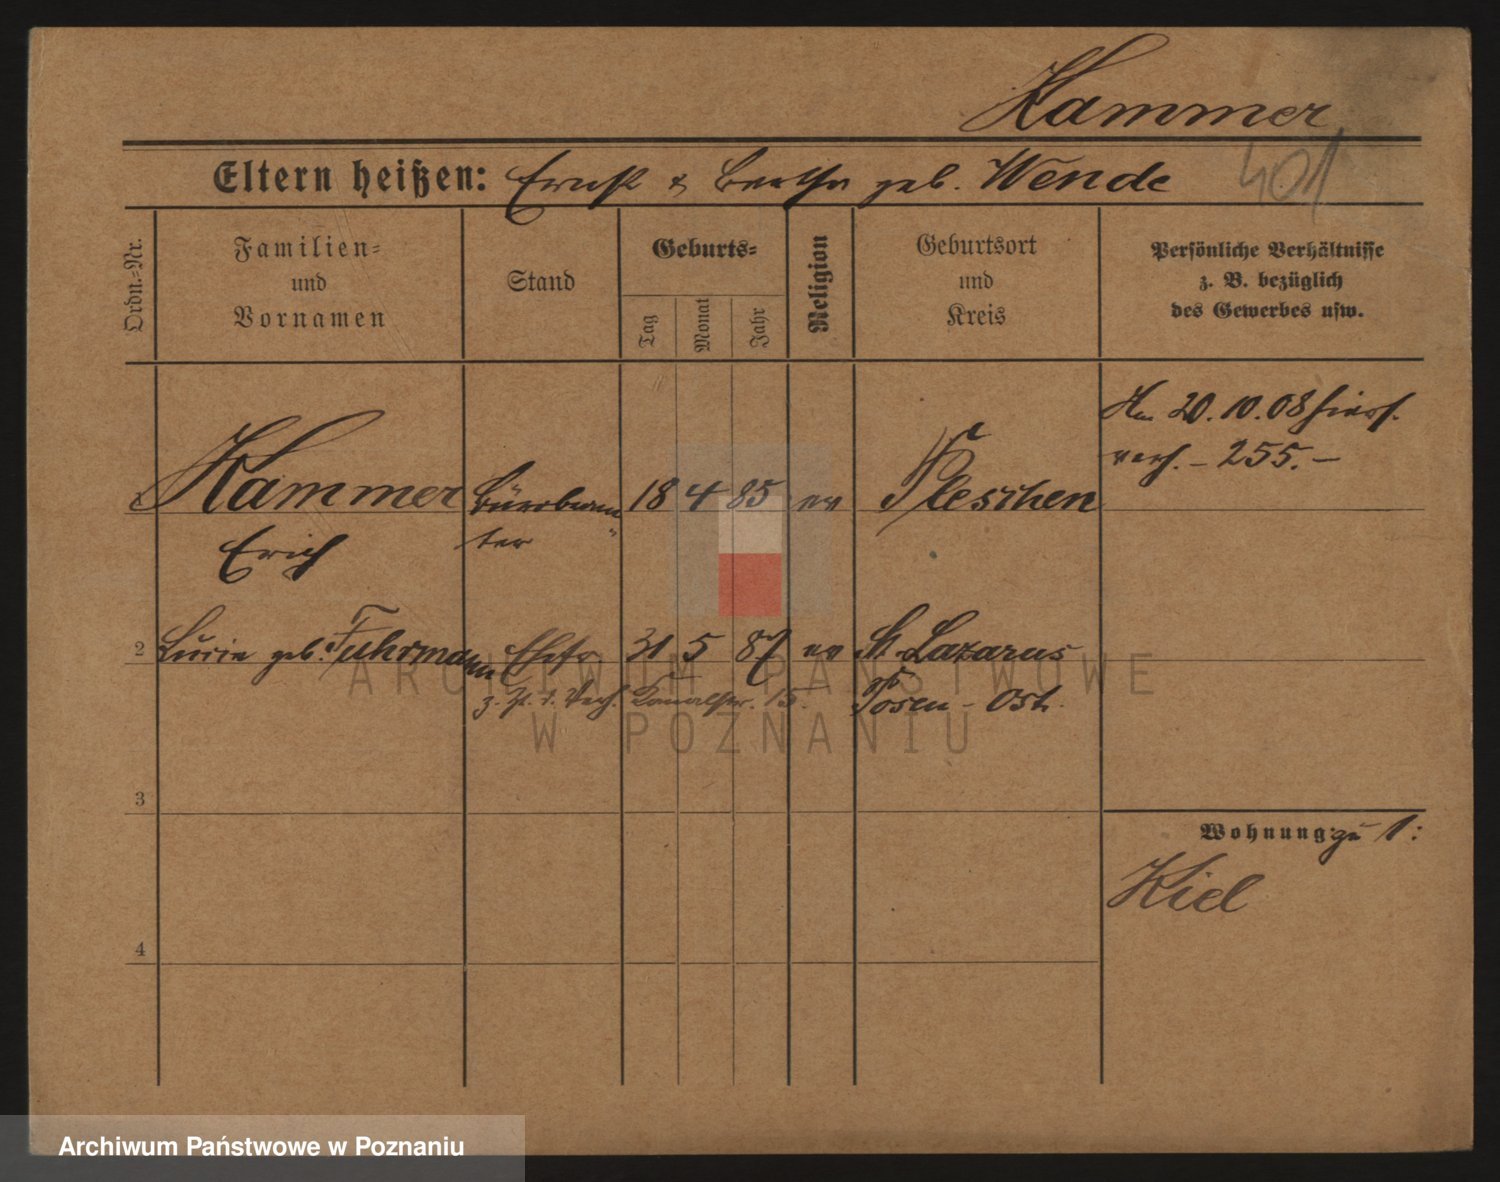 Hammer
401
Eltern heißen: Ernst & Bertha geb. Wende
Ordn.-Nr.
Familien-
und
Vornamen
Stand
Geburts-
Tag
Monat
Jahr
Religion
Geburtsort
und
Kreis
Persönliche Verhältnisse
z. B. bezüglich
des Gewerbes usw.
Hammer
Erich
Bürobeam-
ter
18 4 85 ev
Pleschen
20.10.08 hiers.
verh. – 255. –
2
geb. Fuhrmann Ehefr 31 5 87 ev St. Lazarus
Posen - Ost.
z. Zt. 15.
3
Wohnung: zu 1:
Kiel
4
ARCHIWUM PAŃSTWOWE
W POZNANIU
Archiwum Państwowe w Poznaniu